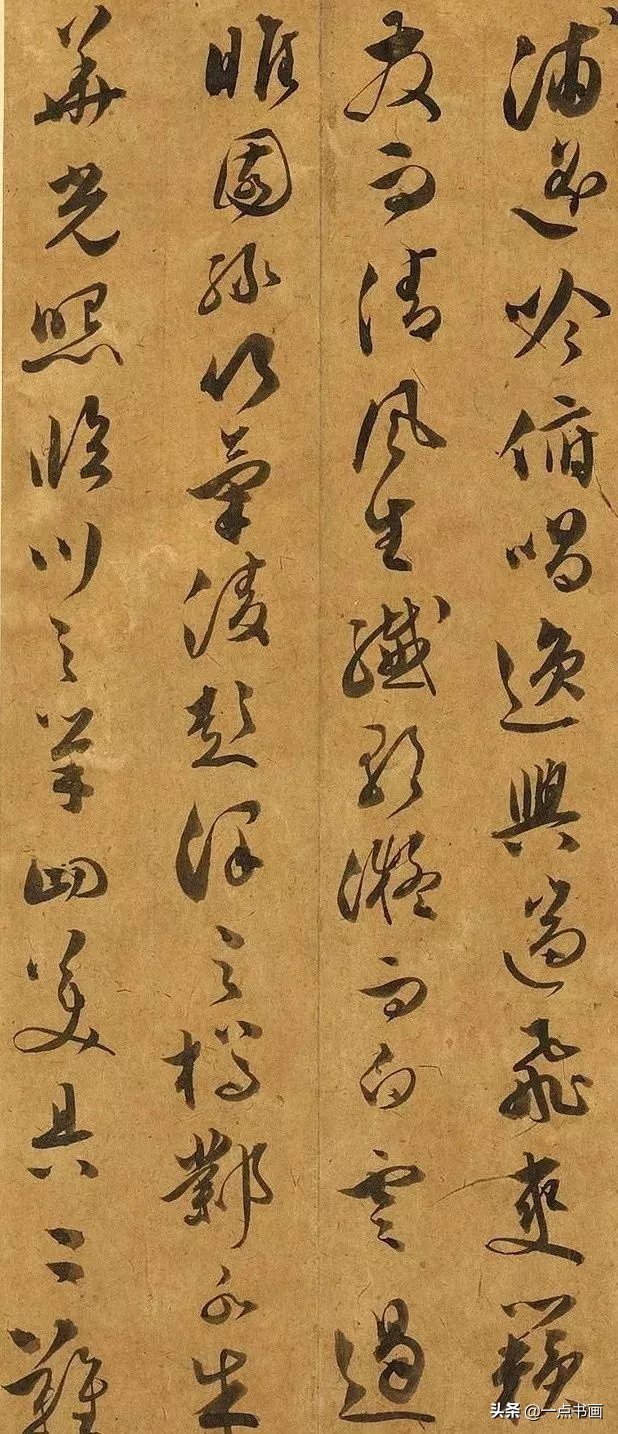 浦遥吟俯唱逸興遄飛爽籟
發而清風生纖歌凝而白雲遏
睢園綠竹氣凌彭澤之樽鄴水朱
華光照臨川之筆四美具二難
头条 @一点书画